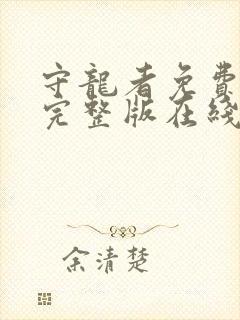 守龍者免費
完整版在綫
余清楚